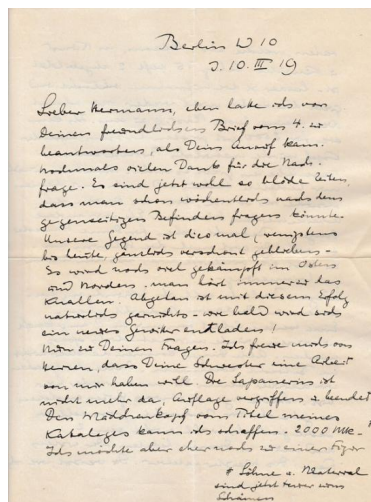 Berlin W 10
D. 10. III 19
Lieber Hermann, eben hatte ich vor
Deinen freundlichen Brief vom 4. zu
beantworten, als Dein Anruf kam.
Nochmals vielen Dank für die Nach-
frage. Es sind jetzt wohl so blöde Zeiten,
dass man schon wöchentlich nach dem
gegenseitigen Befinden fragen könnte.
Unsere Gegend ist diesmal, wenigstens
bis heute, ziemlich verschont geblieben.
Es wird noch viel gekämpft im Osten
und Norden, man hört immerzu das
Knallen. Abgetan ist mit diesem Erfolg
natürlich garnichts - wie bald wird sich
ein neues Gewitter entladen!
Nun zu Deinen Fragen. Ich freue mich von
Herzen, dass Deine Schwester eine Arbeit
von mir haben will. Die Japanerin ist
nicht mehr da, Auflage vergriffen u. beendet
Den Mädchenkopf vom Titel meines
Kataloges kann ich schaffen. 2000 Mk. #
Ich möchte aber eher noch zu einer Figur
# Löhne u. Material
sind jetzt teuer zum
Schämen